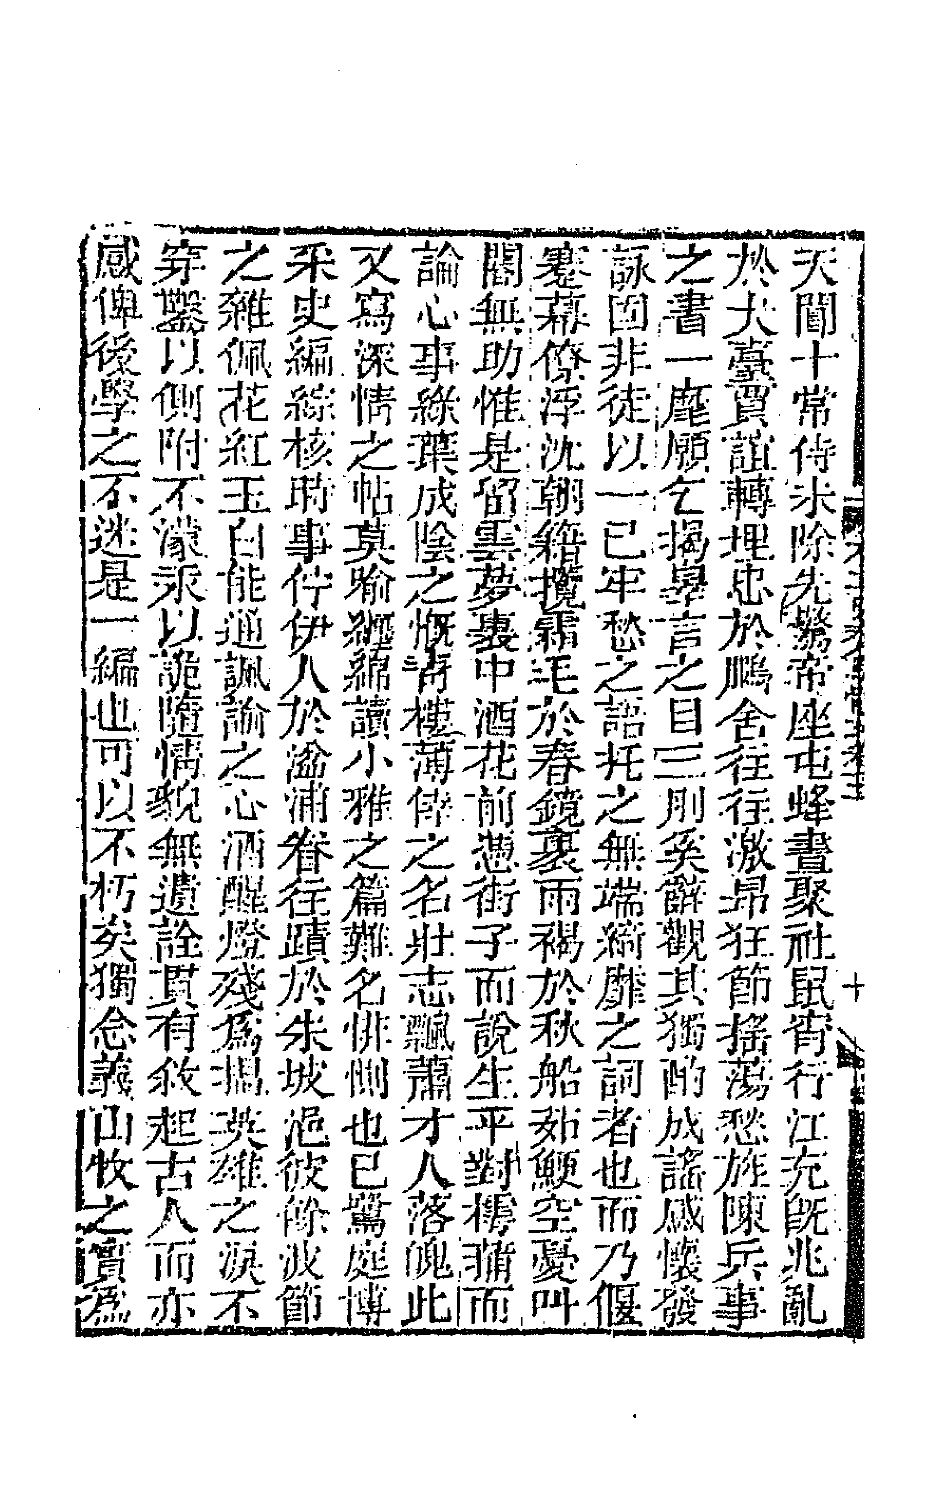 天閽十常侍未除先驚帝座屯蜂晝聚社鼠宵行江充旣兆亂
於犬臺賈誼轉埋忠於鵬舍往往激昂狂節搖蕩愁旌陳兵事
之書一麾願乞揭罪言之目三則奚辭觀其獨酌成謠感懷發
詠固非徒以一已牢愁之語托之無端綺靡之詞者也而乃偃
蹇幕僚浮沈朝籍攬霜毛於春鏡裹雨褐於秋船如鯁空憂叫
閽無助惟是留雲夢裏中酒花前憑街子而說生平對樗蒲而
論心事綠葉成陰之慨靑樓薄倖之名壯志飄蕭才人落魄此
又寫深情之帖莫喻纏綿讀小雅之篇難名悱惻也已驚庭博
采史編綜核時事佇伊人於湓浦眷往蹟於朱坡浥彼餘波節
之雜佩花紅玉白能通諷諭之心酒醒燈殘爲揾英雄之淚不
穿鑿以側附不濛汞以詭隨情貌無遺詮貫有敘起古人而亦
感俾後學之不迷是一編也可以不朽矣獨念義山牧之實爲
十